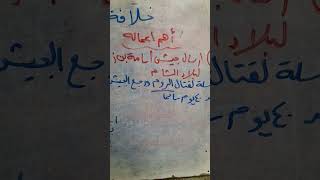 خلافة
أهم أعماله
ارسال جيش أسامة بن ز
لبلاد الشام
سلة لقتال الروم ورجع الجيش
٤٠ يوم سالما